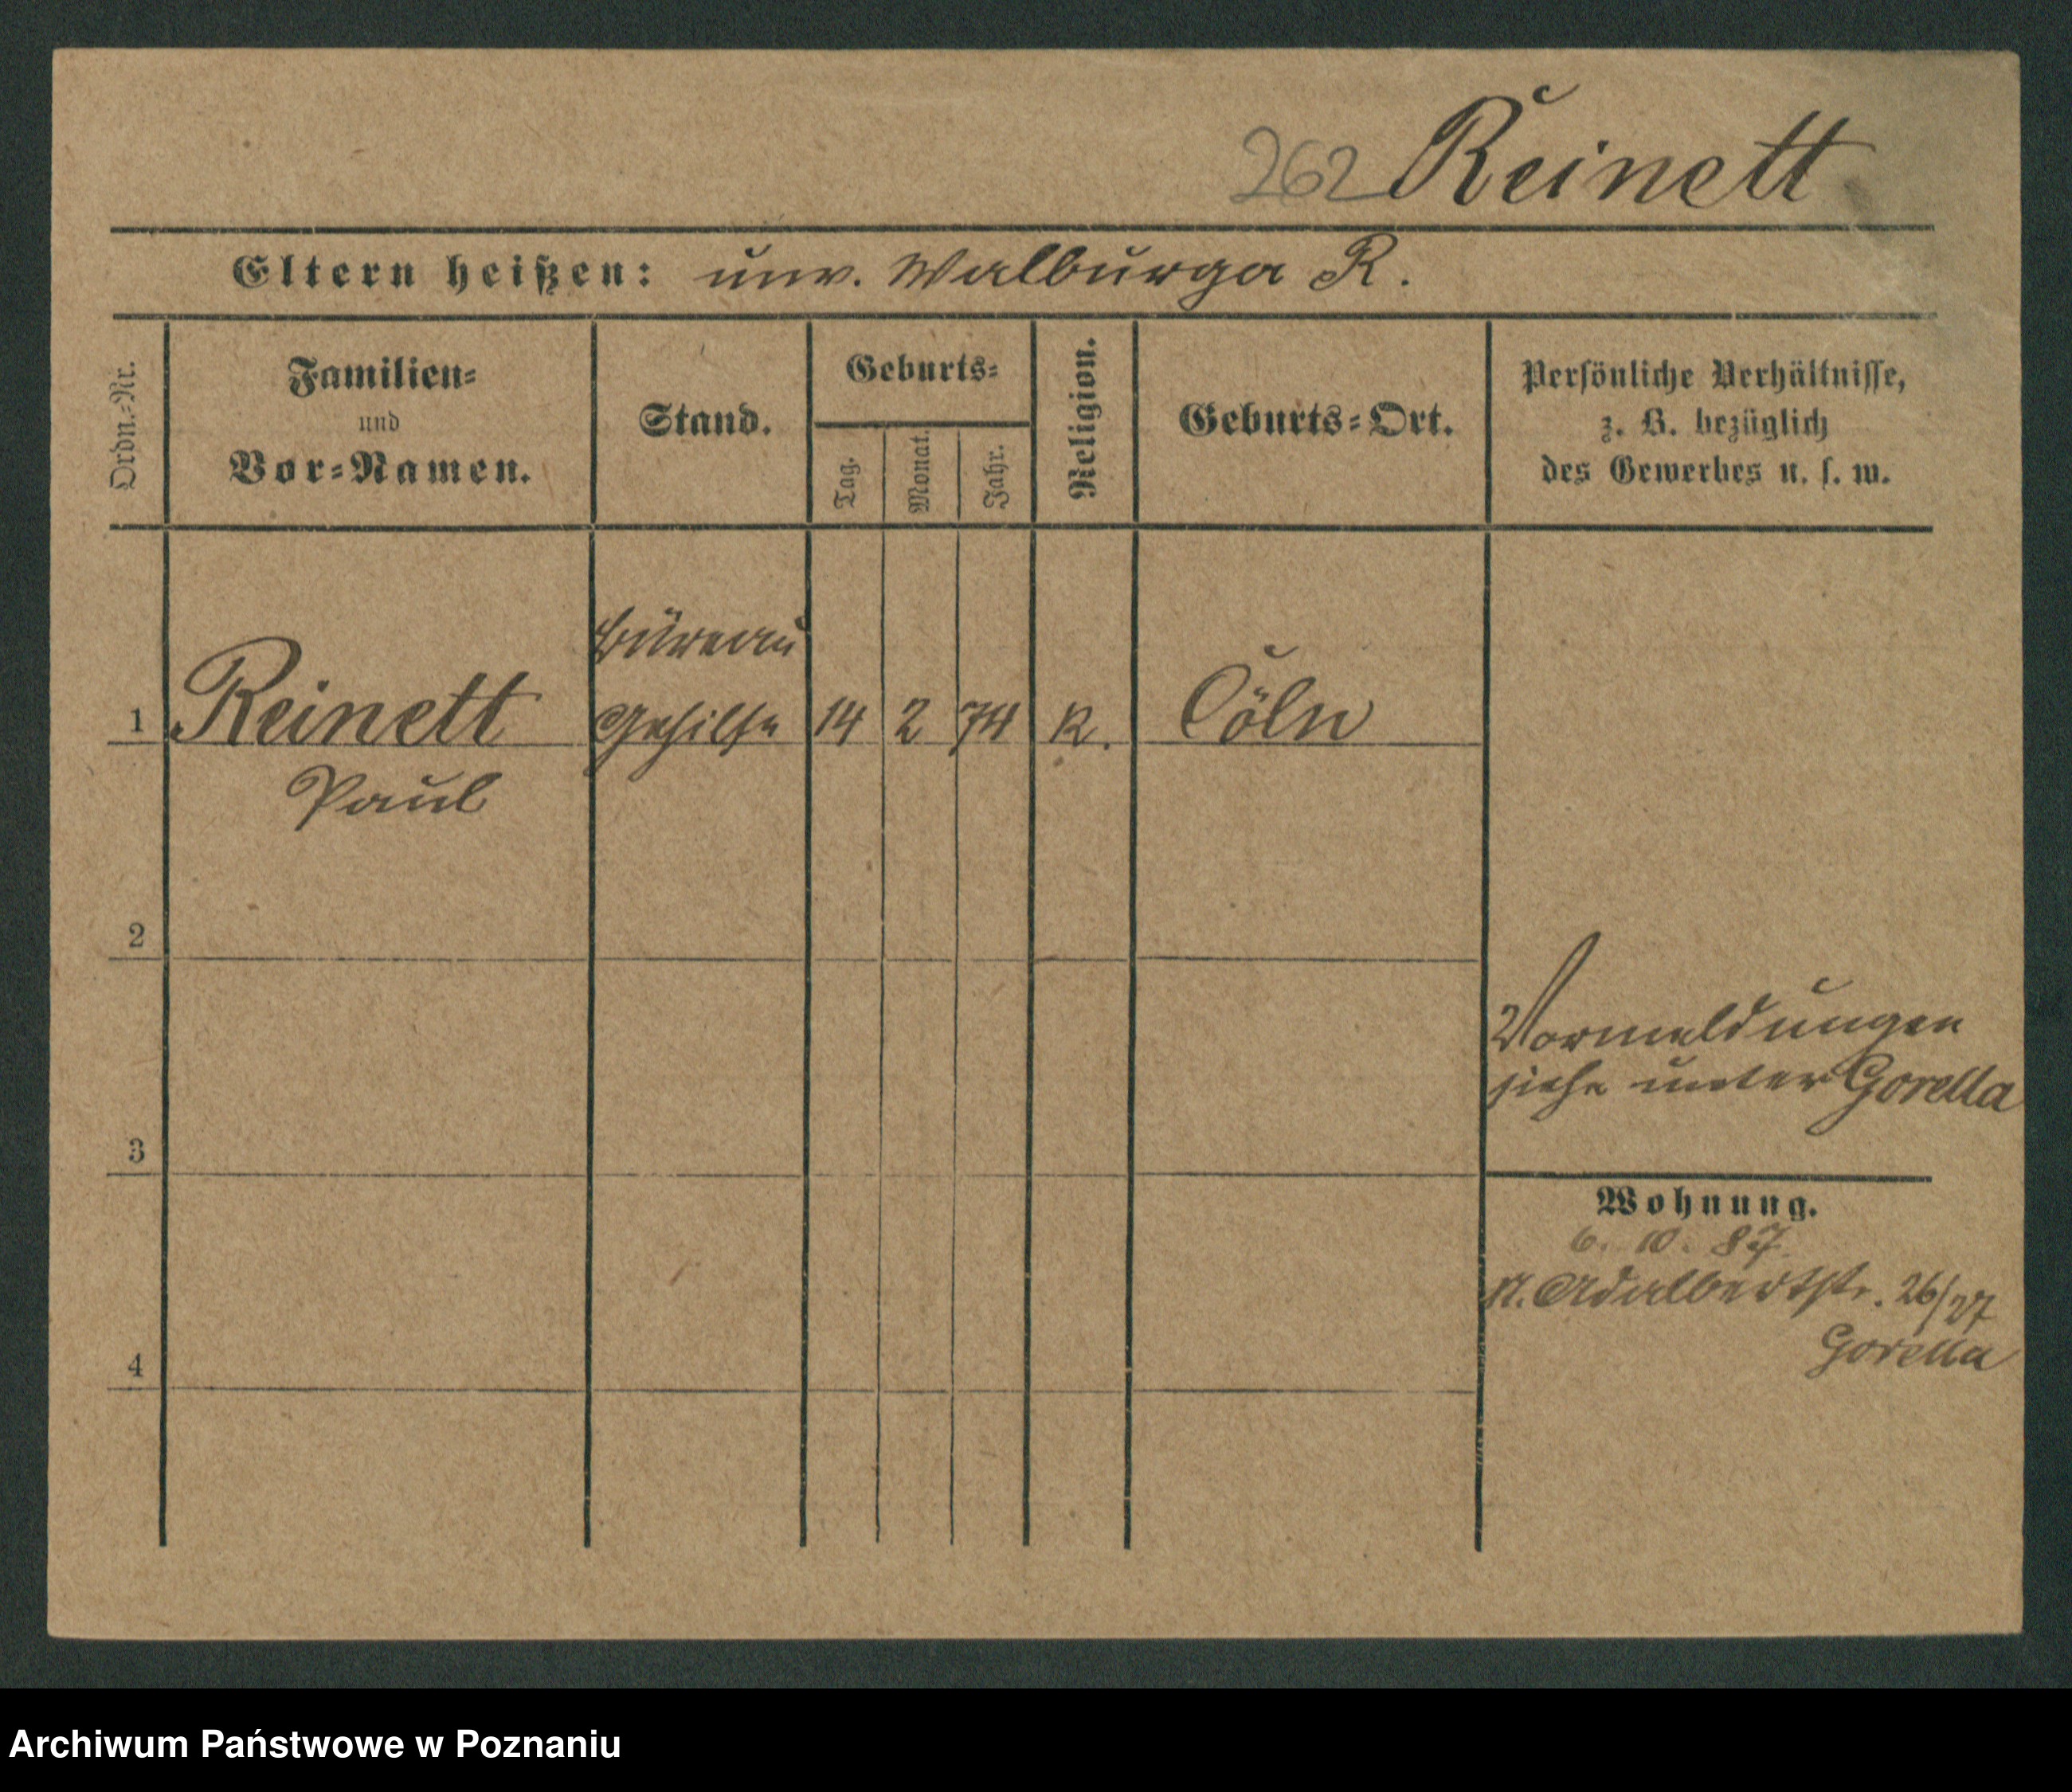 262 Reinett
Eltern heißen: unv. Walburga R.
Ordn.-Nr.
Familien-
und
Vor-Namen.
Stand.
Geburts-
Tag.
Monat.
Jahr.
Religion.
Geburts-Ort.
Persönliche Verhältnisse,
z. B. bezüglich
des Gewerbes u. s. w.
Büreau
1 Reinett Gehilfe 14 2 74 K. Cöln
Paul
2
Vormeldungen
siehe unter Gorella
3
Wohnung.
6. 10. 87.
St. Adalbertstr. 26/27
Gorella
4
Archiwum Państwowe w Poznaniu